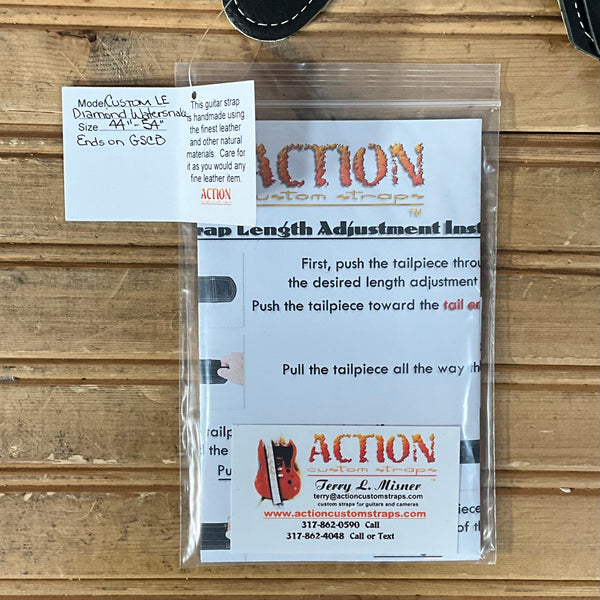 Model CUSTOM LE
Diamond Watersnake
Size 44"-54"
Ends on GSCB
This guitar strap
is handmade using
the finest leather
and other natural
materials. Care for
it as you would any
fine leather item.
ACTION
ACTION
custom straps
TM
rap Length Adjustment Inst
First, push the tailpiece throu
the desired length adjustment
Push the tailpiece toward the tail en
Pull the tailpiece all the way th
tailp
d the
Pu
iece
of th
ACTION
custom straps
Terry L. Misner
terry@actioncustomstraps.com
custom straps for guitars and cameras
www.actioncustomstraps.com
317-862-0590 Call
317-862-4048 Call or Text